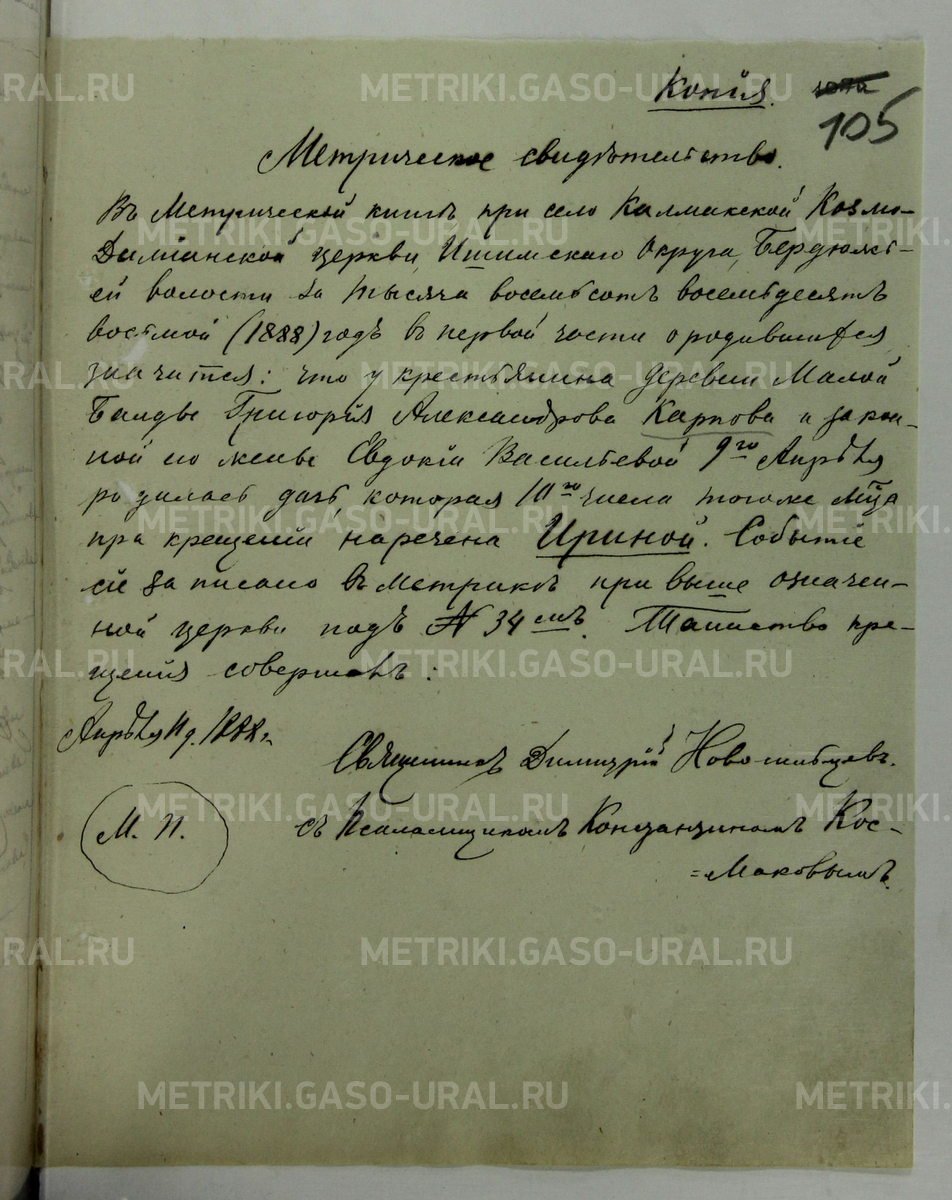 Копія.
105
Метрическое свидѣтельство.
Въ Метрической книгѣ при село Калмакской Козмо-
Даміанской церкви, Ишимскаго Округа, Бердюжс-
ей волости за тысяча восемьсотъ восемьдесятъ
восьмой (1888) годъ въ первой части о родившихся
значится: что у крестьянина деревни Малой
Григорія Александрова Карпова и закон-
ной его жены Евдокіи Васильевой 9го Апрѣля
родилась дочь, которая 10го числа того же М-ца
при крещеніи наречена Ириной. Событіе
сіе записано въ метрикѣ при выше означен-
ной церкви подъ № 34 мъ. Таинство кре-
щенія совершалъ:
Апрѣля 11 д. 1888 г.
Священникъ Димитрій
М. П.
съ Псаломщикомъ Константиномъ Кос-
=маковымъ.
METRIKI.GASO-URAL.RU